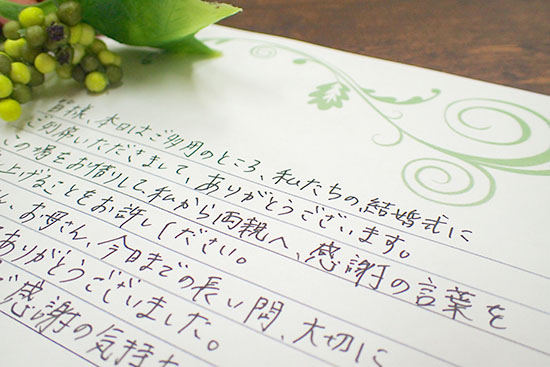 皆様、本日はご多用のところ、私たちの結婚式に
ご列席いただきまして、ありがとうございます。
この場をお借りして、私から両親へ、感謝の言葉を
上げることをお許しください。
お母さん、今日までの長い間、大切に
ありがとうございました。
感謝の気持ち